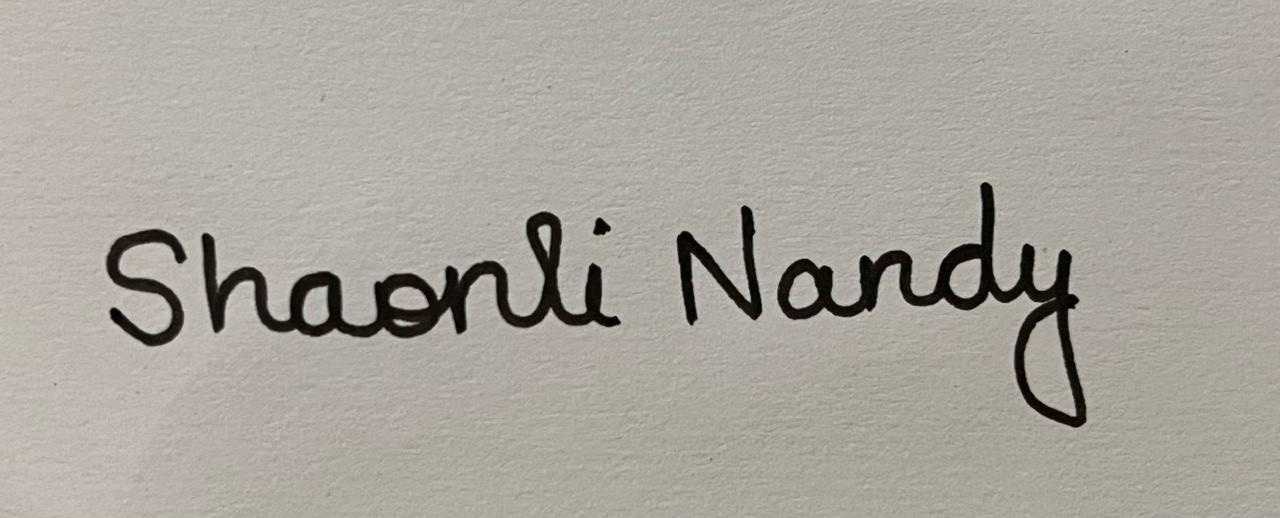 Shaonli Nandy